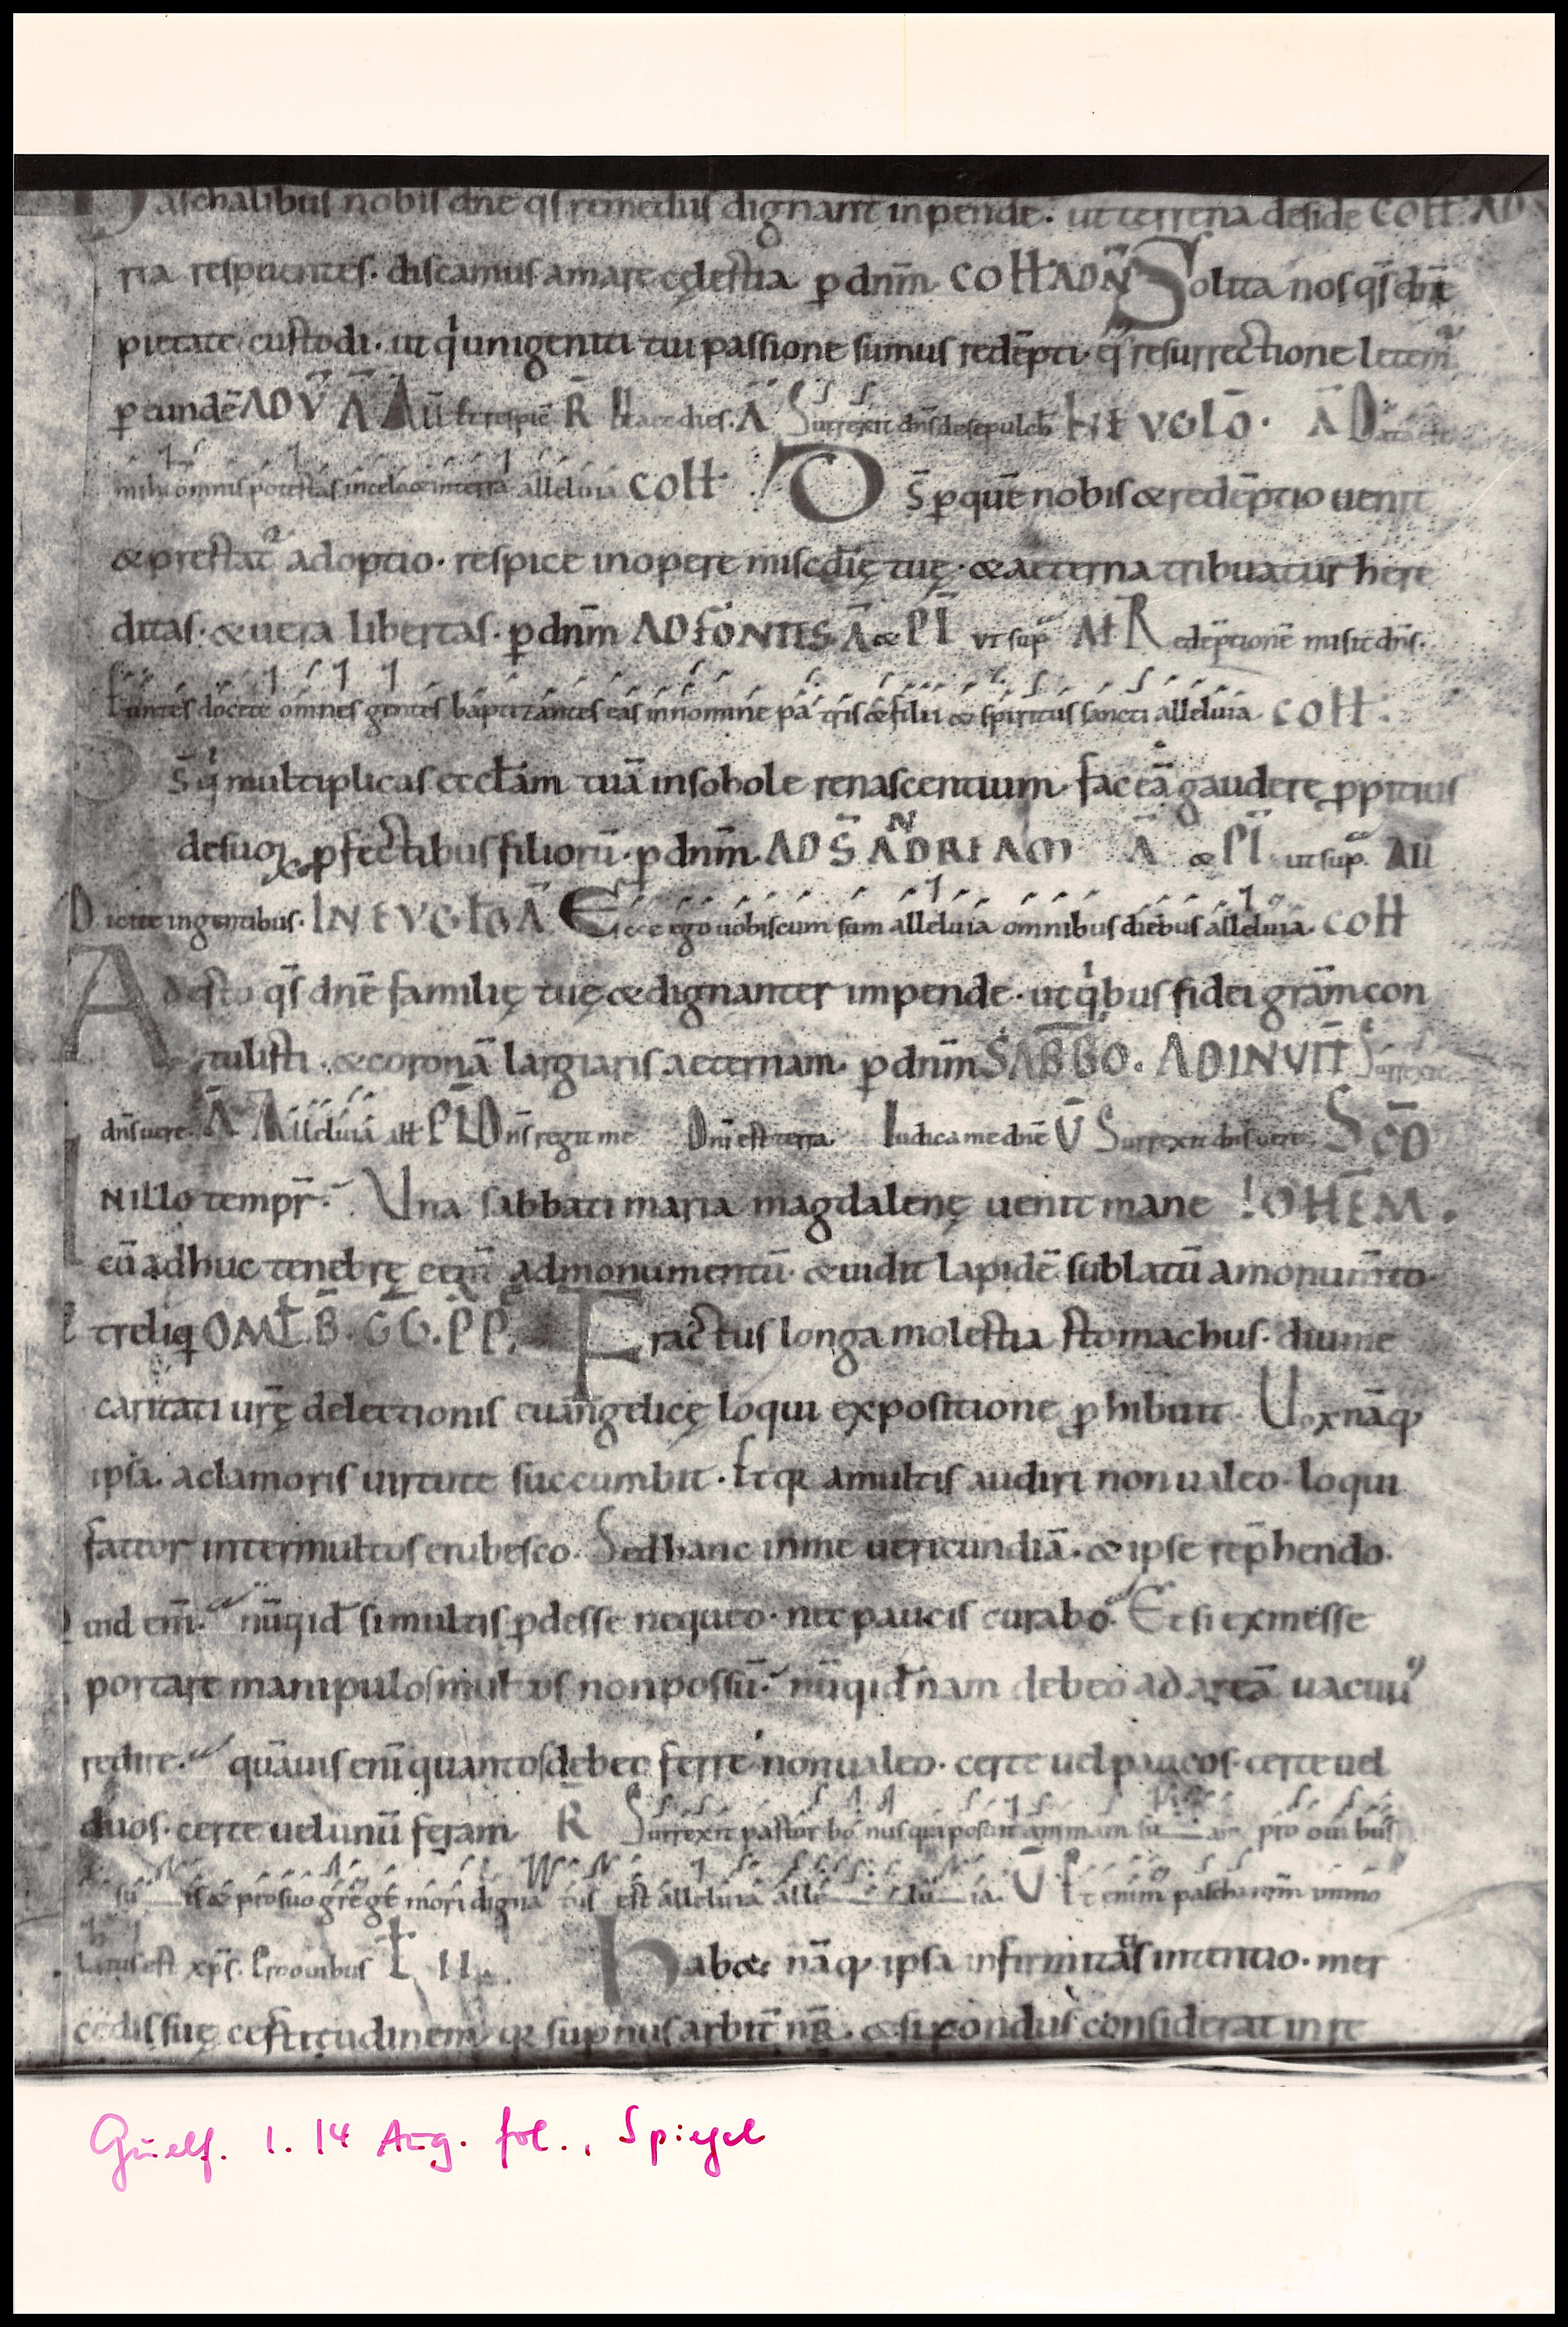 Paschalibus nobis dn̄e qs̄ remediis dignant̄ inpende · ut terrena deside COLL AD
ria respuentes · discamus amare cęlestia p̱ dnm̄ COLL AD N̄ Solita nos qs̄ dn̄e
pietate custodi · ut qͥ unigeniti tui passione sumus redēpti · eꝰ resurrectione letemꝰ
p̱ eundē AD V̄ Ā All R̄ Haec dies · Ā Surrexit dn̄s de sepulch̄ IN EVGLŌ · Ā Data est
mihi omnis potestas in celo & in terra alleluia COLL D
s̄ p̱ quē nobis & redēptio uenit
& prestat᷑ adoptio · respice in opere misc̄dię tuę · & aeterna tribuatur here
ditas · & uera libertas · p̱ dnm̄ AD FONTES Ā & PL̄ ut sup̄ Redēptionē misit dn̄s ·
Euntes docete omnes gentes baptizantes eas in nomine patris & filii & spiritus sancti alleluia COLL ·
D s̄ qͥ multiplicas eccłam tuā in sobole renascentium · fac eā gaudere p̱pitius
de suoꝝ p̱fectibus filiorū · p̱ dnm̄ AD S̄ ANDREAM Ā & PL̄ ut sup̄ All
Dicite in gentibus · IN EVGLŌ Ā Ecce ego uobiscum sum alleluia omnibus diebus alleluia COLL
Adesto qs̄ dn̄e familię tuę & dignanter impende · ut qͥbus fidei grām con
tulisti · & coronā largiaris aeternam · p̱ dnm̄ SABBŌ · AD INVIT̄ Surrexit
dn̄s uere · Ā Alleluia all PL̄ Dn̄s regit me Dn̄i est terra Iudica me dn̄e V̄ Surrexit dn̄s uere SCD̄
IN ILLO tempr̄ · Una sabbati maria magdalenę uenit mane IOHEM ·
cū adhuc tenebrę ad monumentū · & uidit lapidē sublatū a monum̄to ·
et reliq̄ OMEL · B̄ · GG · PP · Fractus longa molestia stomachus · diu me
caritati urę̄ delectionis euangelicę loqui expositione p̱hibuit · Uox nāq;
ipsa a clamoris uirtute succumbit · Et q̄ a multis audiri non ualeo · loqui
fateor inter multos erubesco · Sed hanc in me uericundiā · & ipse rep̄hendo ·
Quid em̄ · nūqid si multis p̱desse nequeo · nec paucis curabo · Et si ex messe
portare manipulos multos non possū · nūqid nam debeo ad areā uacuuꝰ
redire · quāuis em̄ quantos debeo ferre non ualeo · certe uel paucos · certe uel
duos · certe uel unū feram R̄ Surrexit pastor bonus qui posuit animam suam pro ouibus
suis & pro suo grege mori dignatus est alleluia alleluia V̄ Etenim pascha nrm̄ immo
latus est xp̄s · Pro ouibus L II · Habet nāq; ipsa infirmitatis intentio · mer
cedis suę certitudinem · q̄ sup̱nus arbit̄ nr̄ · & si pondus considerat in re
Guelf. 1. 14 Aug. fol., Spiegel